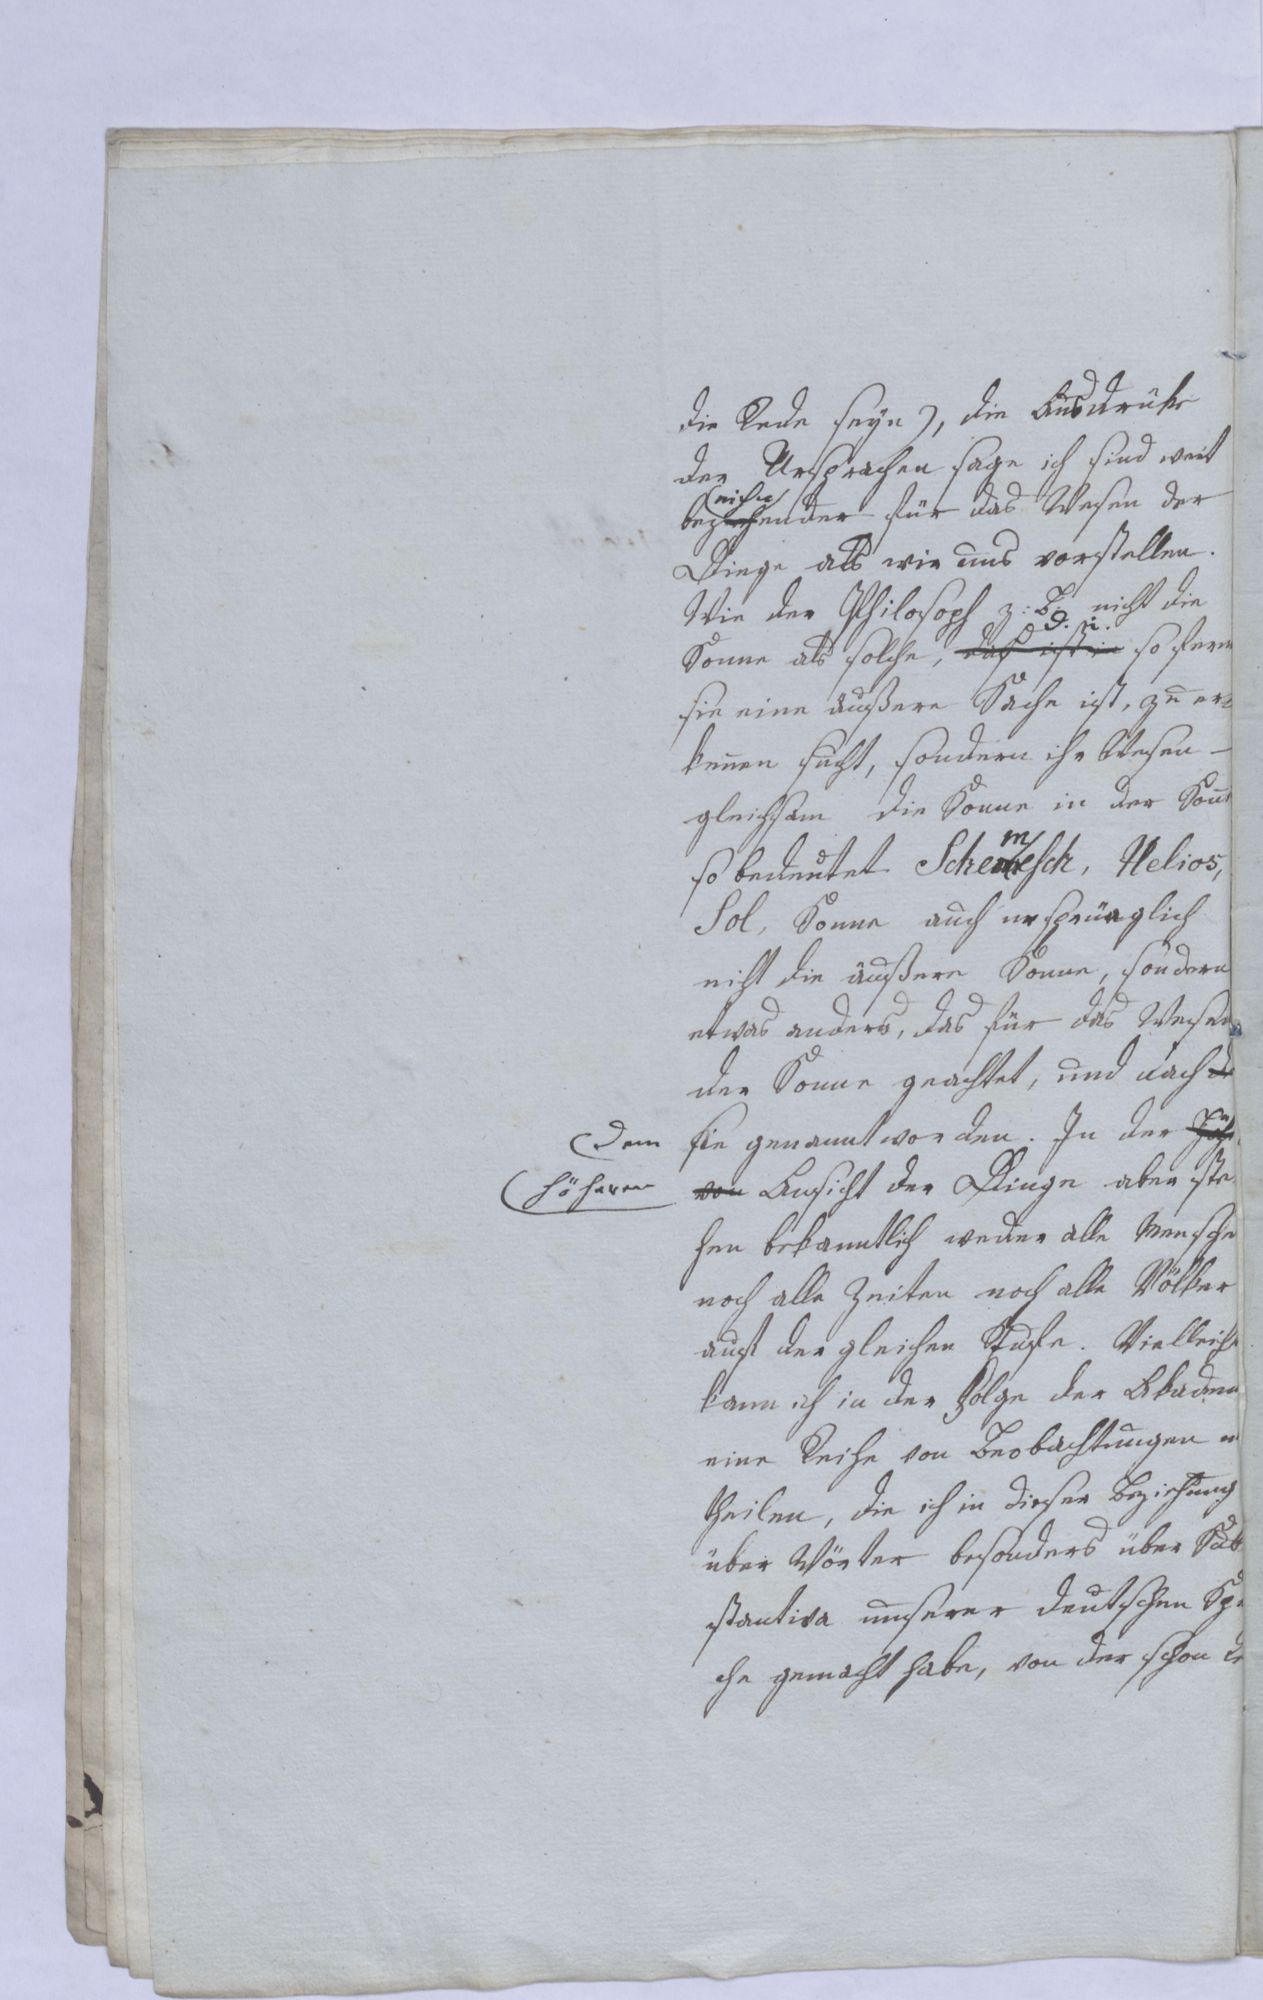 die Rede seyn), die Ausdrüke
der Ursprachen sage ich sind weit
bezeichnender für das Wesen der
Dinge als wir uns vorstellen.
Wie der Philosoph z. B. nicht die
Sonne als solche, d. i. so fern
sie eine äußere Sache ist, zu er-
kennen sucht, sondern ihr Wesen –
gleichsam die Sonne in der Sonn
so bedeutet Schemesch, Helios,
Sol, Sonne auch ursprünglich
nicht die äußere Sonne, sondern
etwas anders, das für das Wesen
der Sonne geachtet, und nach
dem sie genannt worden. In der
höheren Ansicht der Dinge aber ste-
hen bekanntlich weder alle Mensche
noch alle Zeiten noch alle Völker
auf der gleichen Stufe. Vielleicht
kann ich in der Folge der Akadem
eine Reihe von Beobachtungen m
theilen, die ich in dieser Beziehung
über Wörter besonders über Sub
stantiva unserer deutschen Spra
che gemacht habe, von der schon